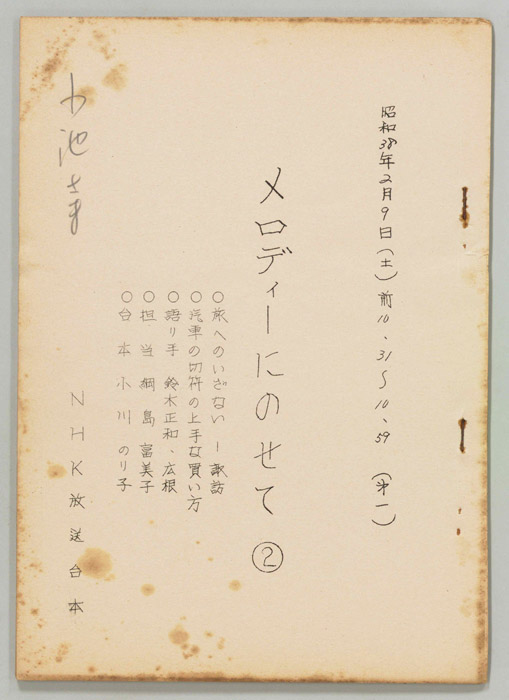 昭和38年2月9日(土)前10、31〜10、59 (オ一)
メロディーにのせて ②
○旅へのいざない ー 諏訪
○汽車の切符の上手な買い方
○語り手 鈴木正和、広根
○担当 綱島富美子
○台本 小川のり子
NHK放送台本
小池